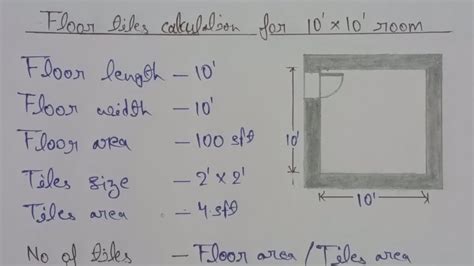 Floor tiles calculation for 10' × 10' room
Floor length – 10'
Floor width – 10'
Floor area – 100 sft
Tiles size – 2' × 2'
Tiles area – 4 sft
No of tiles – Floor area / Tiles area
10'
10'